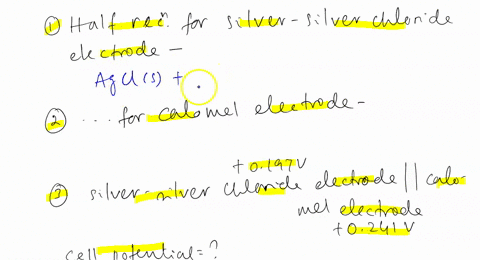 ① Half rec̃ⁿ. for silver-silver chloride
electrode –
AgCl(s) +
② ... for calomel electrode –
+0.197V
③ silver-silver chloride electrode || calo-
mel electrode
+0.241V
cell potential = ?